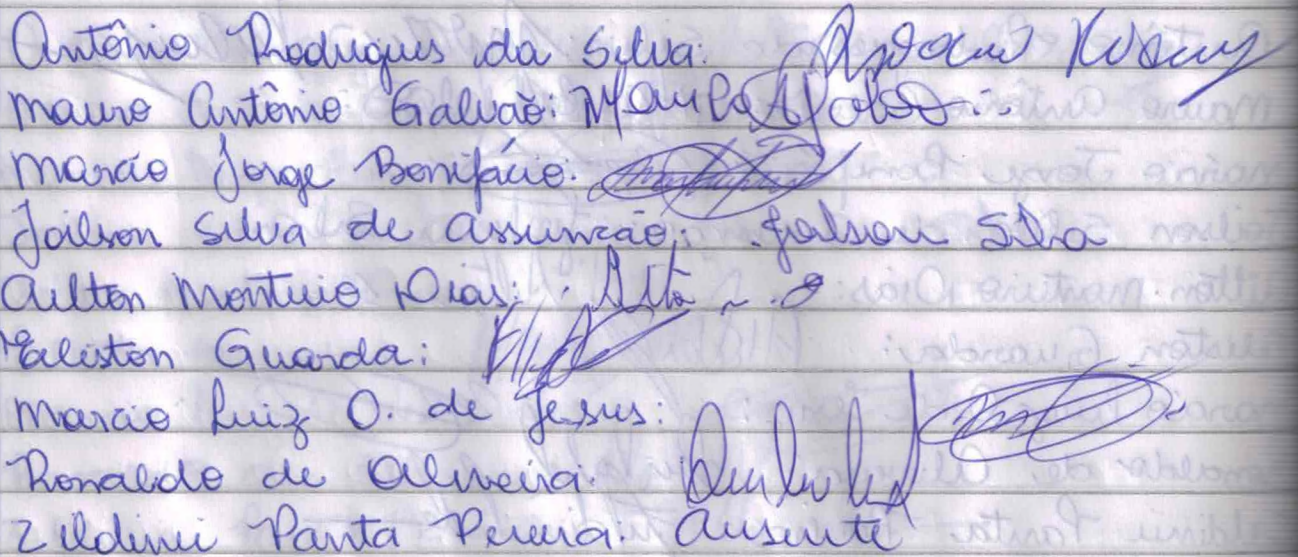 Antônio Rodrigues da Silva:
Mauro Antônio Galvão:
Marcio Jorge Bonifácio:
Joilson Silva de Assunção: Joilson Silva
Ailton Monteiro Dias:
Eliston Guarda:
Marcio Luiz O. de Jesus:
Ronaldo de Oliveira:
Zildinei Panta Pereira: Ausente